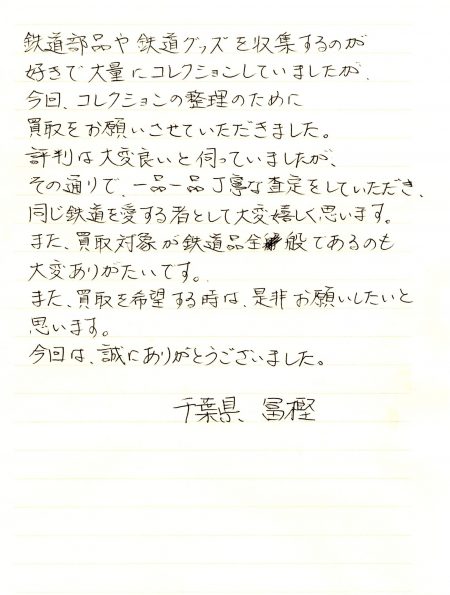 鉄道部品や鉄道グッズを収集するのが
好きで大量にコレクションしていましたが、
今回、コレクションの整理のために
買取をお願いさせていただきました。
評判は大変良いと伺っていましたが、
その通りで、一品一品丁寧な査定をしていただき、
同じ鉄道を愛する者として大変嬉しく思います。
また、買取対象が鉄道品全般であるのも
大変ありがたいです。
また、買取を希望する時は、是非お願いしたいと
思います。
今回は、誠にありがとうございました。
千葉県 冨樫